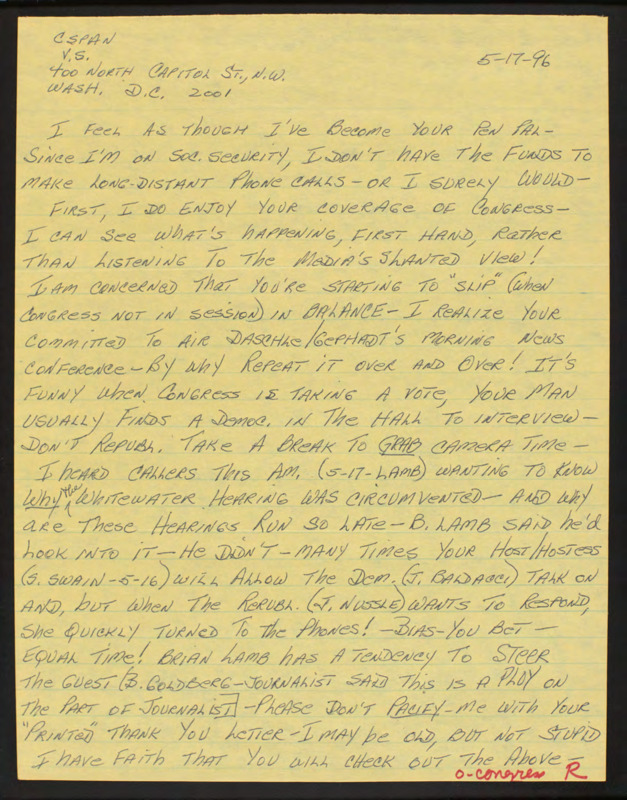 CSPAN
V.S.
400 NORTH CAPITOL ST., N.W.
WASH. D.C. 2001
5-17-96
I FEEL AS THOUGH I'VE BECOME YOUR PEN PAL-
SINCE I'M ON SOC. SECURITY, I DON'T HAVE THE FUNDS TO
MAKE LONG-DISTANT PHONE CALLS - OR I SURELY WOULD-
FIRST, I DO ENJOY YOUR COVERAGE OF CONGRESS-
I CAN SEE WHAT'S HAPPENING, FIRST HAND, RATHER
THAN LISTENING TO THE MEDIA'S SLANTED VIEW!
I AM CONCERNED THAT YOU'RE STARTING TO "SLIP" (WHEN
CONGRESS NOT IN SESSION) IN BALANCE - I REALIZE YOUR
COMMITTED TO AIR DASCHLE/GEPHADT'S MORNING NEWS
CONFERENCE - BY WHY REPEAT IT OVER AND OVER! IT'S
FUNNY WHEN CONGRESS IS TAKING A VOTE, YOUR MAN
USUALLY FINDS A DEMOC. IN THE HALL TO INTERVIEW-
DON'T REPUBL. TAKE A BREAK TO GRAB CAMERA TIME-
I HEARD CALLERS THIS AM. (5-17-LAMB) WANTING TO KNOW
WHY THE WHITEWATER HEARING WAS CIRCUMVENTED - AND WHY
ARE THESE HEARINGS RUN SO LATE - B. LAMB SAID HE'D
LOOK INTO IT - HE DIDN'T - MANY TIMES YOUR HOST/HOSTESS
(S. SWAIN-5-16) WILL ALLOW THE DEM. (J. BALDACCI) TALK ON
AND, BUT WHEN THE REPUBL. (J. NUSSLE) WANTS TO RESPOND,
SHE QUICKLY TURNED TO THE PHONES! - BIAS-YOU BET-
EQUAL TIME! BRIAN LAMB HAS A TENDENCY TO STEER
THE GUEST (B. GOLDBERG-JOURNALIST SAID THIS IS A PLOY ON
THE PART OF JOURNALIST] - PLEASE DON'T PACIFY - ME WITH YOUR
"PRINTED" THANK YOU LETTER - I MAY BE OLD, BUT NOT STUPID
I HAVE FAITH THAT YOU WILL CHECK OUT THE ABOVE-
O-CONGRESS R